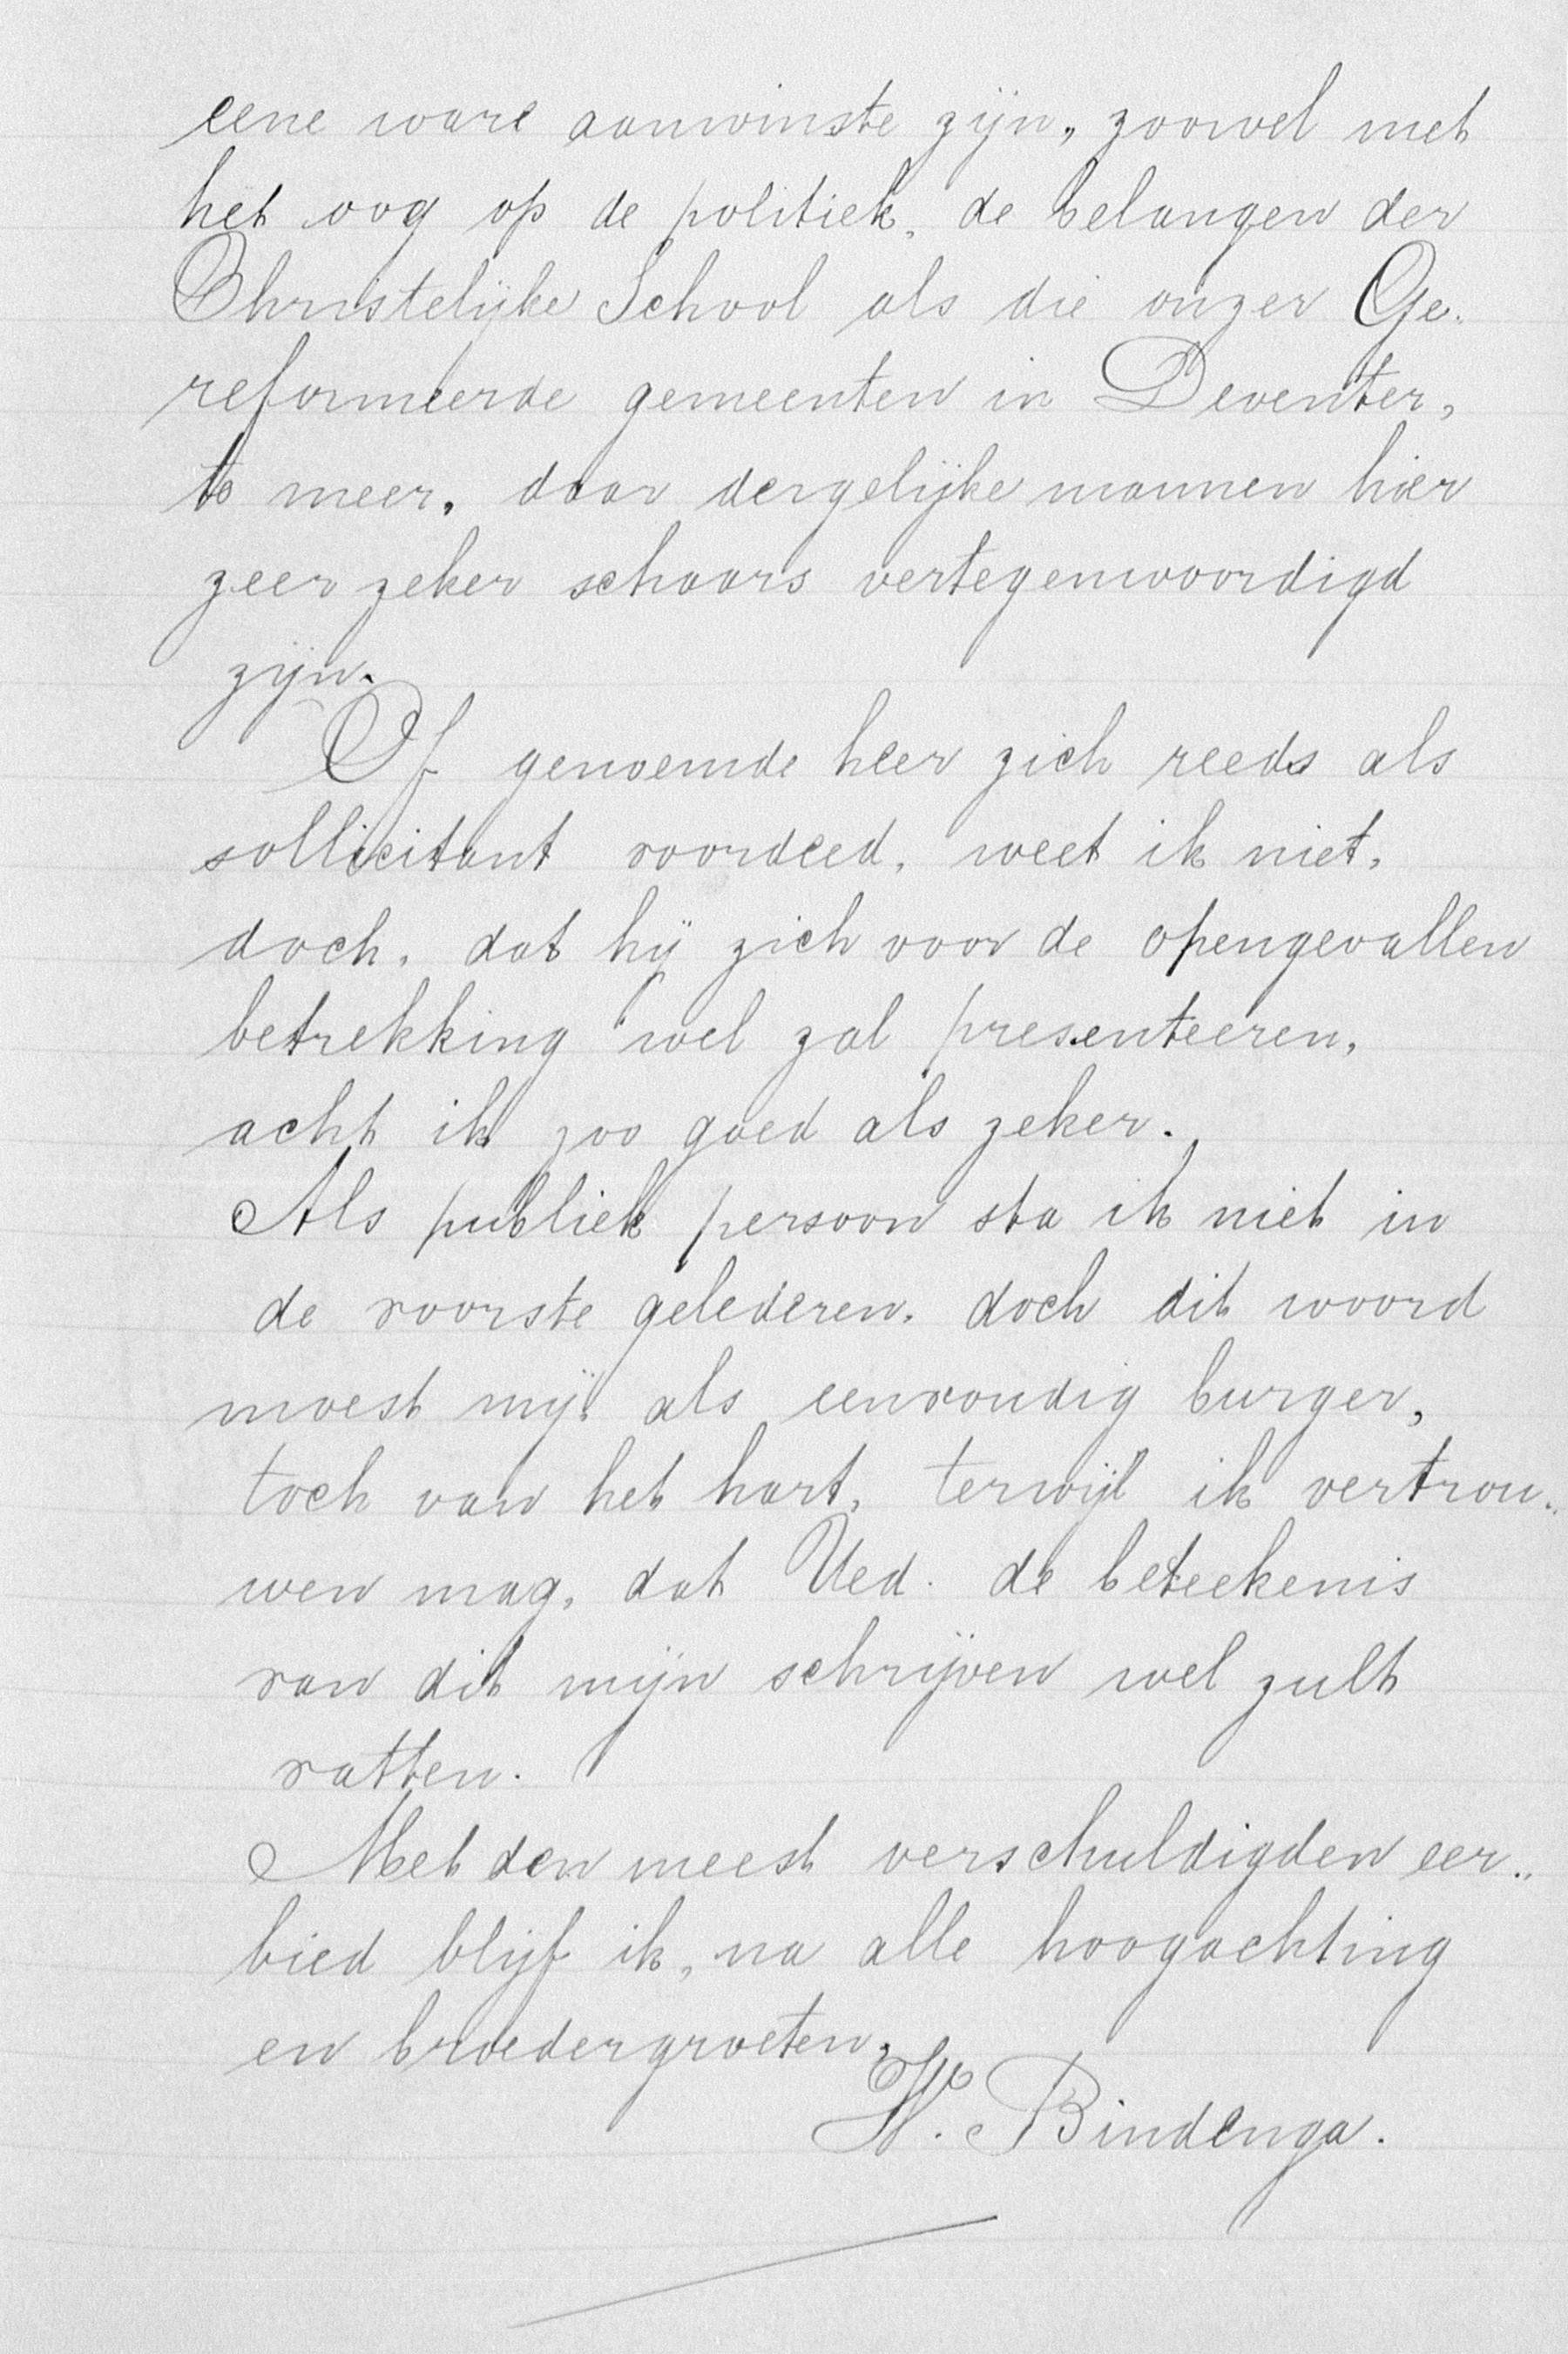 eene ware aanwinste zijn, zoowel met
het oog op de politiek, de belangen der
Christelijke School als die onzer Ge-
reformeerde gemeenten in Deventer,
te meer, daar dergelijke mannen hier
zeer zeker schaars vertegenwoordigd
zijn.
Of genoemde heer zich reeds als
sollicitant voordeed, weet ik niet,
doch, dat hij zich voor de opengevallen
betrekking wel zal presenteeren,
acht ik zoo goed als zeker.
Als publiek persoon sta ik niet in
de voorste gelederen, doch dit woord
moest mij, als eenvoudig burger,
toch van het hart, terwijl ik vertrou-
wen mag, dat Ued. de beteekenis
van dit mijn schrijven wel zult
vatten.
Met den meest verschuldigden eer-
bied blijf ik, na alle hoogachting
en broedergroeten,
W. Bindenga.